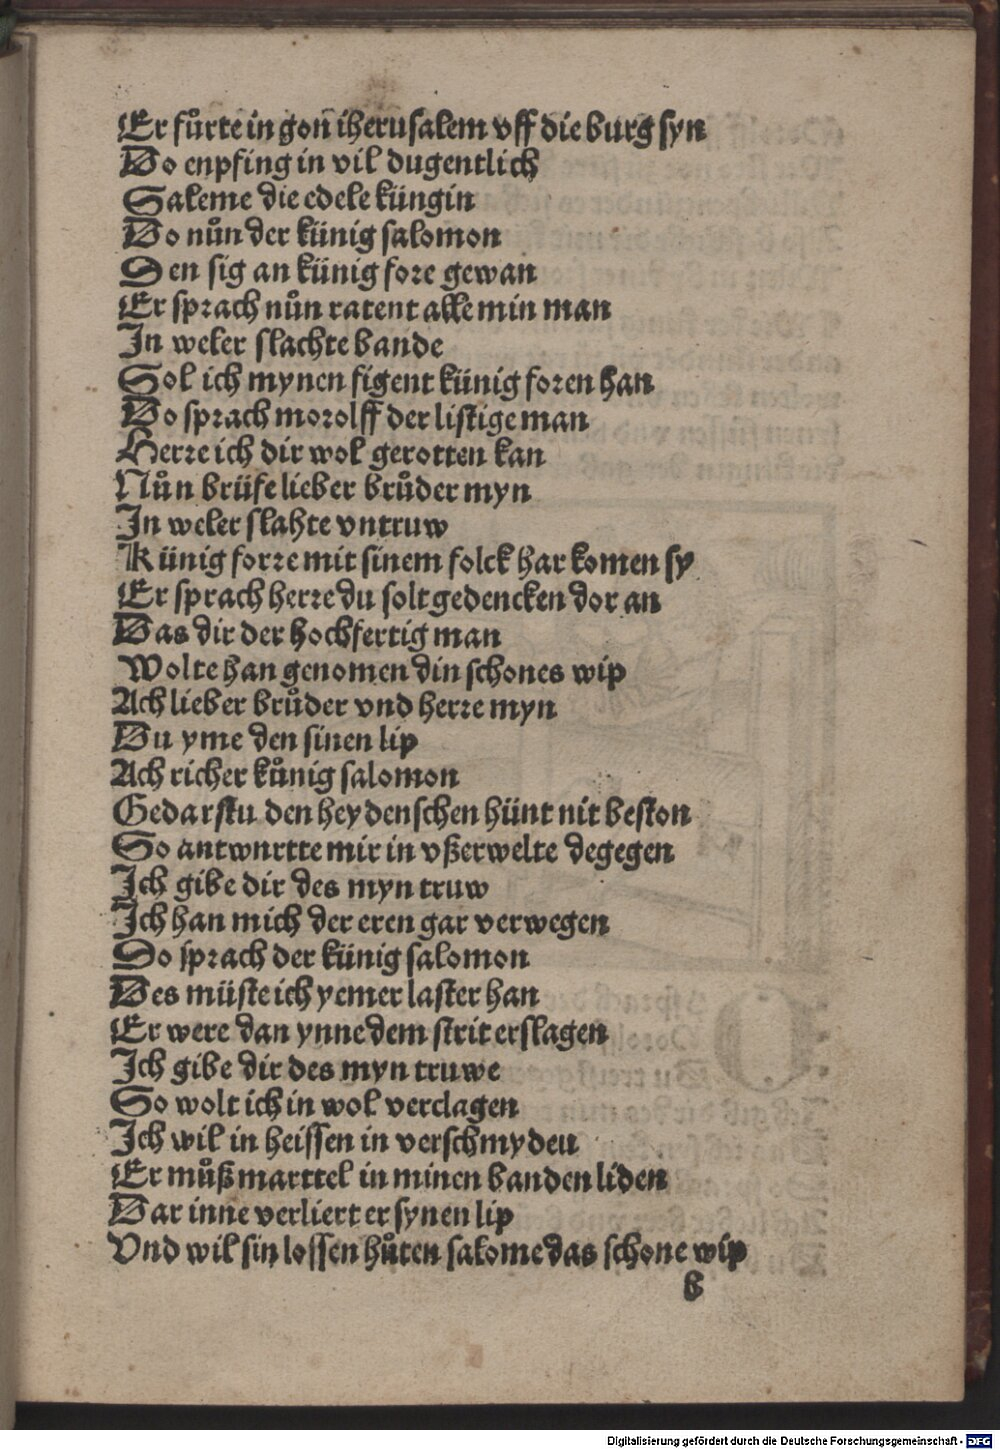 Er fůrte in gon iherusalem vff die burg syn
Do enpfing in vil dugentlich
Saleme die edele küngin
Do nůn der künig salomon
Den sig an künig fore gewan
Er sprach nůn ratent alle min man
In weler slachte bande
Sol ich mynen figent künig foren han
Do sprach morolff der listige man
Herre ich dir wol gerotten kan
Nůn brüfe lieber brůder myn
In weler slahte vntruw
Künig forre mit sinem folck har komen sy
Er sprach herre du solt gedencken dor an
Das dir der hochfertig man
Wolte han genomen din schones wip
Ach lieber brůder vnd herre myn
Du yme den sinen lip
Ach richer kůnig salomon
Gedarstu den heydenschen hünt nit beston
So antwnrtte mir in vßerwelte degegen
Ich gibe dir des myn truw
Ich han mich der eren gar verwegen
Do sprach der künig salomon
Des müste ich yemer laster han
Er were dan ynne dem strit erslagen
Ich gibe dir des myn truwe
So wolt ich in wol verclagen
Ich wil in heissen in verschmyden
Er můß marttel in minen banden liden
Dar inne verliert er synen lip
Vnd wil sin lossen hůten salome das schone wip
b
Digitalisierung gefördert durch die Deutsche Forschungsgemeinschaft - DFG